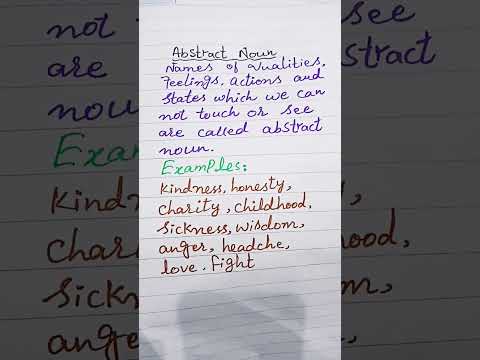 Abstract Noun
Names of Qualities,
Feelings, actions and
States which we can
not touch or see
are called abstract
noun.
Examples:
Kindness, honesty,
charity, childhood,
sickness, wisdom,
anger, headche,
love. fight